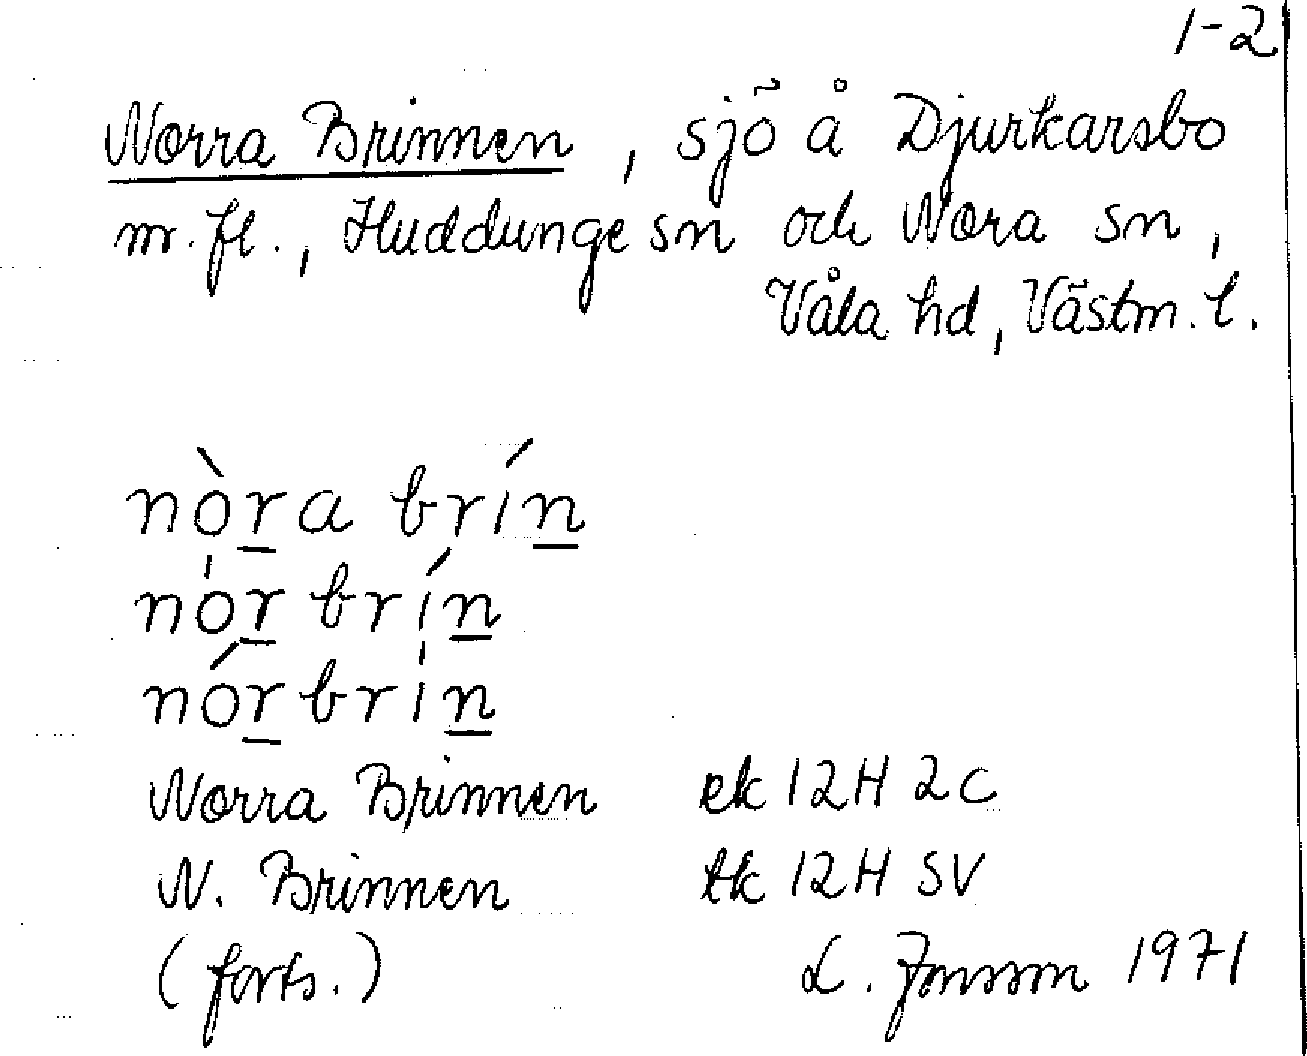 1-2
Norra Brinnen, sjö å Djurkarsbo
m.fl., Huddunge sn och Nora sn,
Våla hd, Västm. l.
nòra brín
nór brín
nór brin
Norra Brinnen ek 12H 2c
N. Brinnen tk 12H SV
(forts.) L. Jonsson 1971